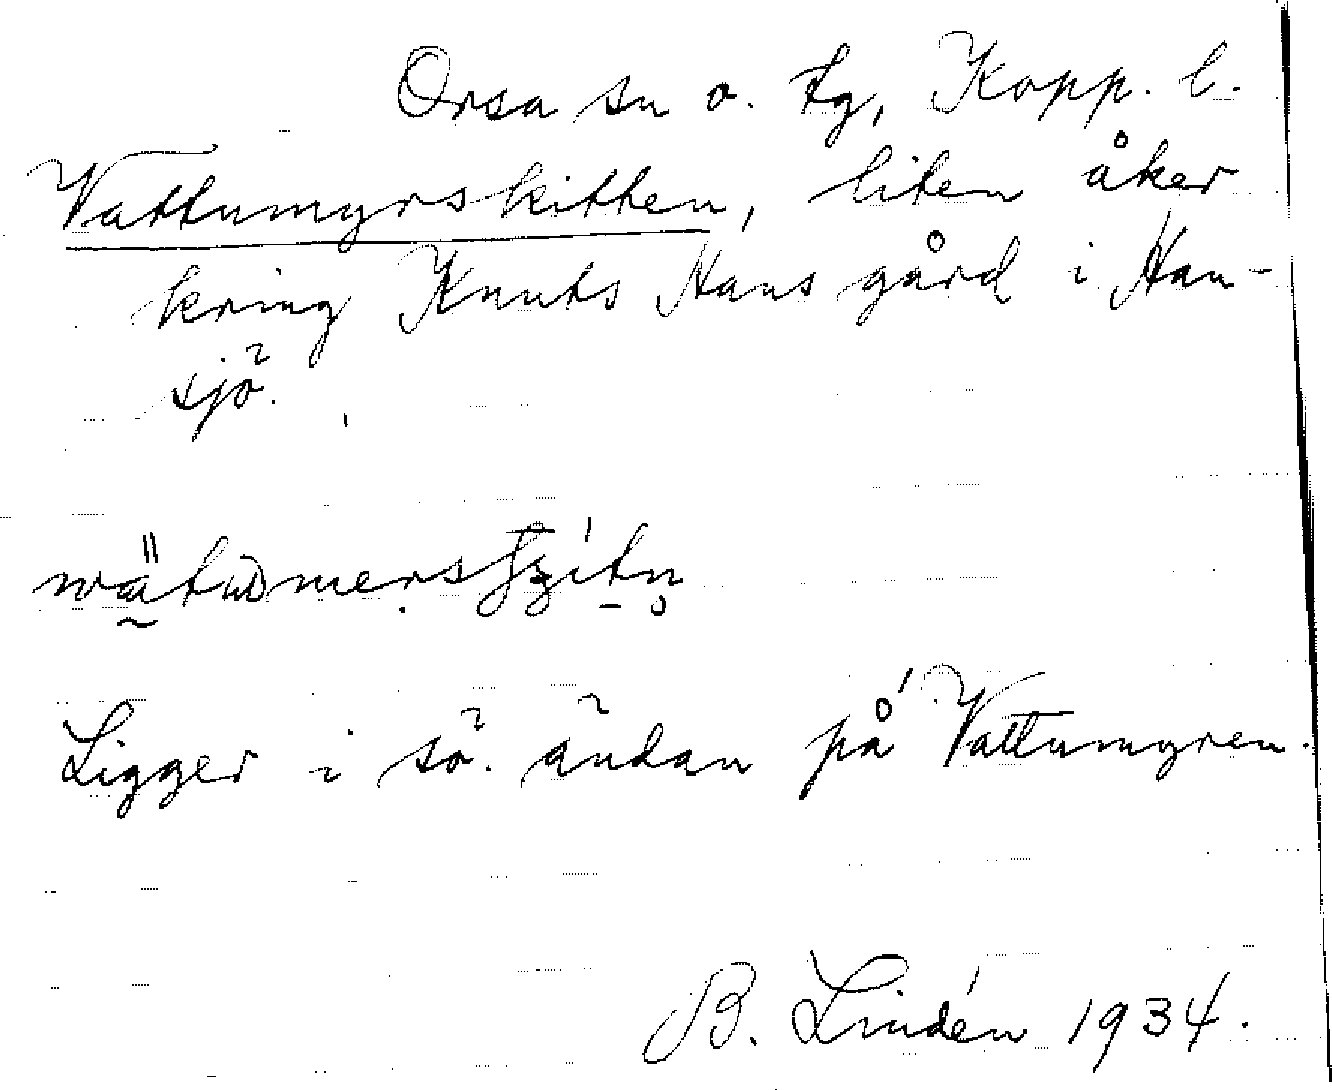 Orsa sn o. tg, Kopp. l.
Vattumyrskitten, liten åker
kring Knuts Hans gård i Han-
sjö.
Ligger i sö. ändan på Vattumyren.
B. Lindén 1934.